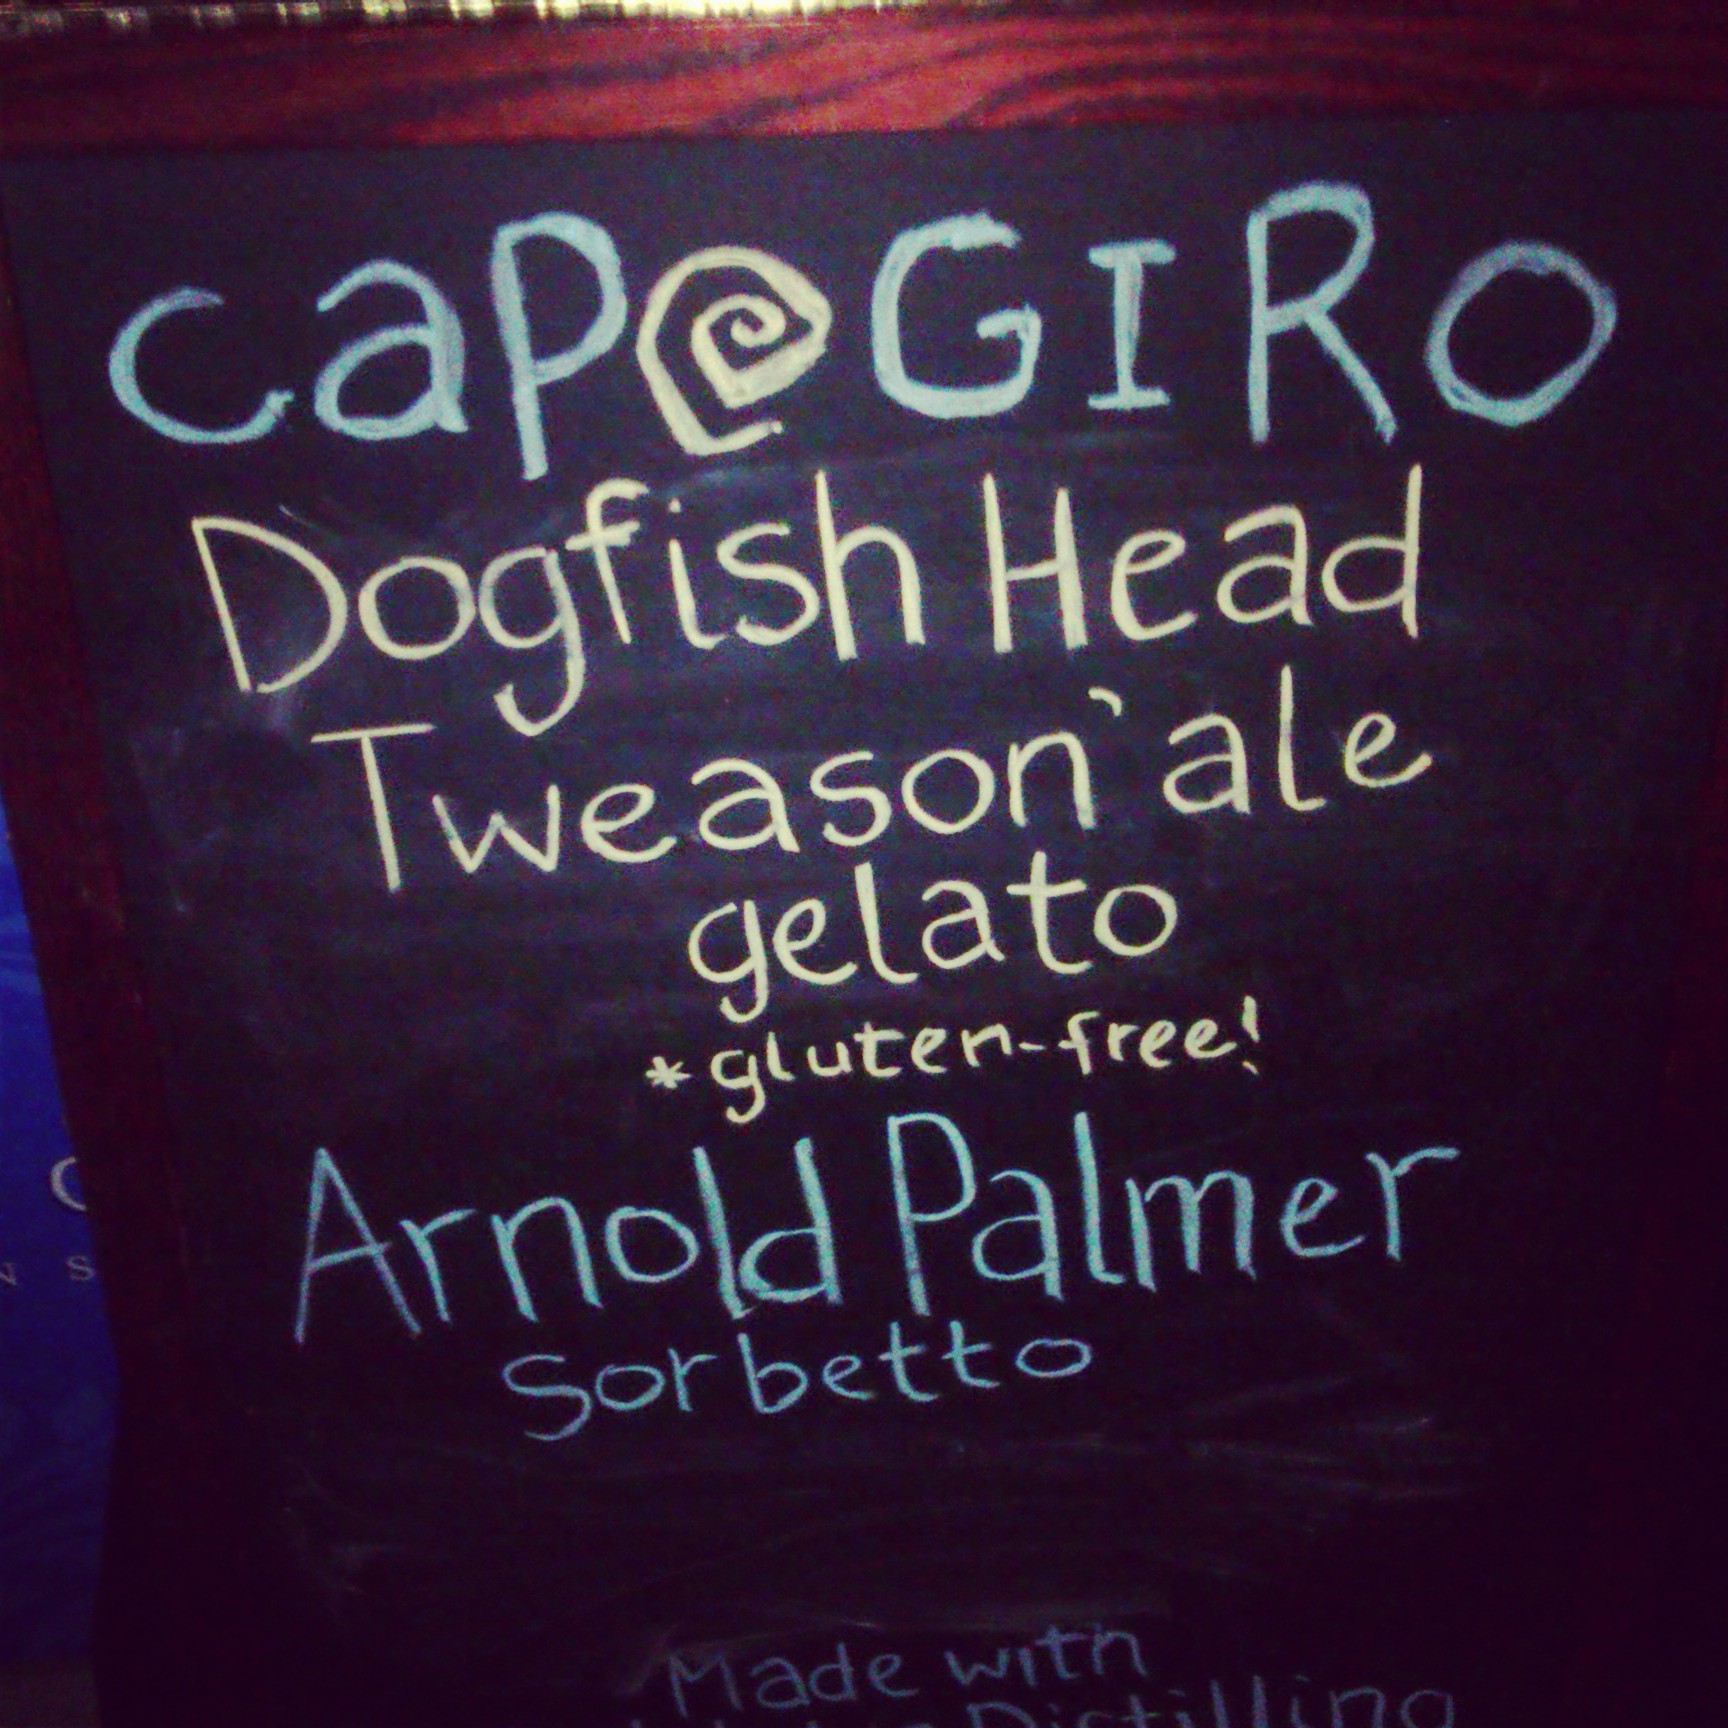 CaPOGIRO
Dogfish Head
Tweason'ale
gelato
*gluten-free!
Arnold Palmer
Sorbetto
Made with
Distilling